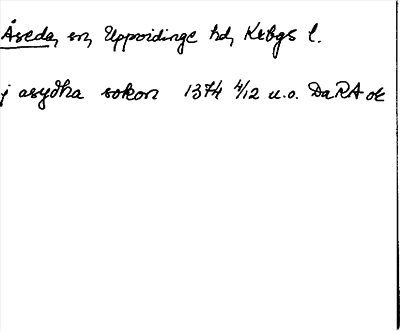 Åseda, sn, Uppvidinge hd, Krbgs l.
j asydha sokon 1374 4/12 u.o. DaRA or